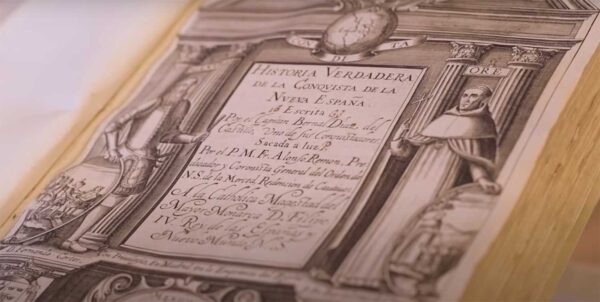 CON LA
DE
ORE
HISTORIA VERDADERA
DE LA CONQVISTA DE LA
NVEVA ESPAÑA
Escrita
Por el Capitan Bernal Diaz del
Castillo, Vno de sus Conquistadores
Sacada a luz
Por el P. M. Fr. Alonso Remon, Pre
dicador y Coronista General del Orden de
N. S. de la Merced Redencion de Cautiuos
A la Catholica Magestad del
Mayor Monarca D. Filipe
IV. Rey de las Españas y
Nuevo Mundo N. S.